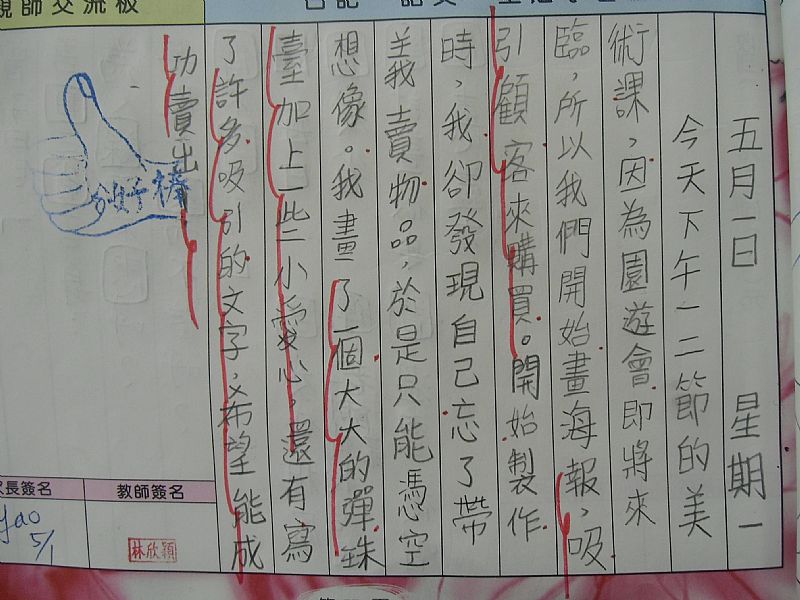 親師交流板
五月一日 星期一
今天下午一二節的美
術課，因為園遊會即將來
臨，所以我們開始畫海報，吸
引顧客來購買。開始製作
時，我卻發現自己忘了帶
義賣物品，於是只能憑空
想像。我畫了一個大大的彈珠
臺加上一些小愛心，還有寫
了許多吸引的文字，希望能成
功賣出
好棒
教師簽名
長簽名
林欣穎
5/1